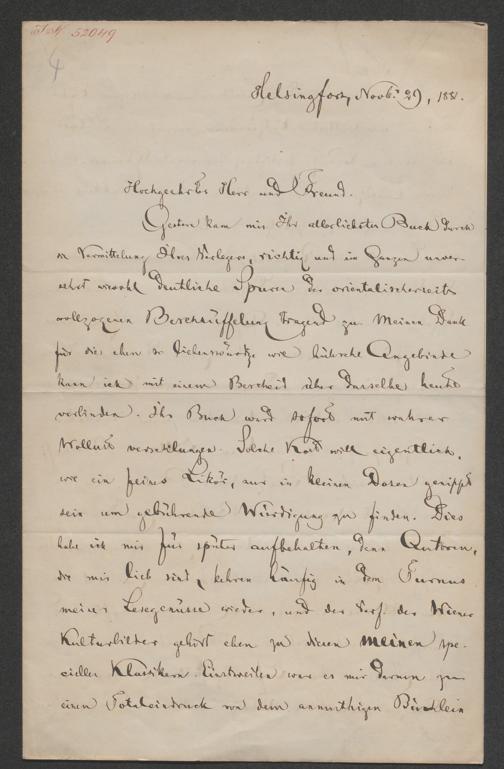 52049
4
Helsingfors, Novbr. 29, 1881.
Hochgeehrter Herr und Freund.
Gestern kam mir Ihr allerliebstes Buch durch
die Vermittelung Ihres Verlegers, richtig und im Ganzen unver-
sehrt wiewohl deutliche Spuren der orientalischerseits
vollzogenen Beschnüffelung tragend zu. Meinen Dank
für die eben so liebenswürdige wie hübsche Angebinde
kann ich mit einem Bescheid über dasselbe heute
verbinden. Ihr Buch ward sofort mit wahrer
Wollust verschlungen. Solche Kost will eigentlich,
wie ein feines Likör, nur in kleinen Dosen genippt
sein um gebührende Würdigung zu finden. Dies
habe ich mir für später aufbehalten, denn Autoren,
die mir lieb sind, kehren häufig in dem Turnus
meiner Lesegenüsse wieder, und der Verf. der Wiener
Kulturbilder gehört eben zu diesen meinen spe-
ciellen Klassikern. Einstweilen war es mir darum zu
einen Totaleindruck von dem anmuthigen Büchlein